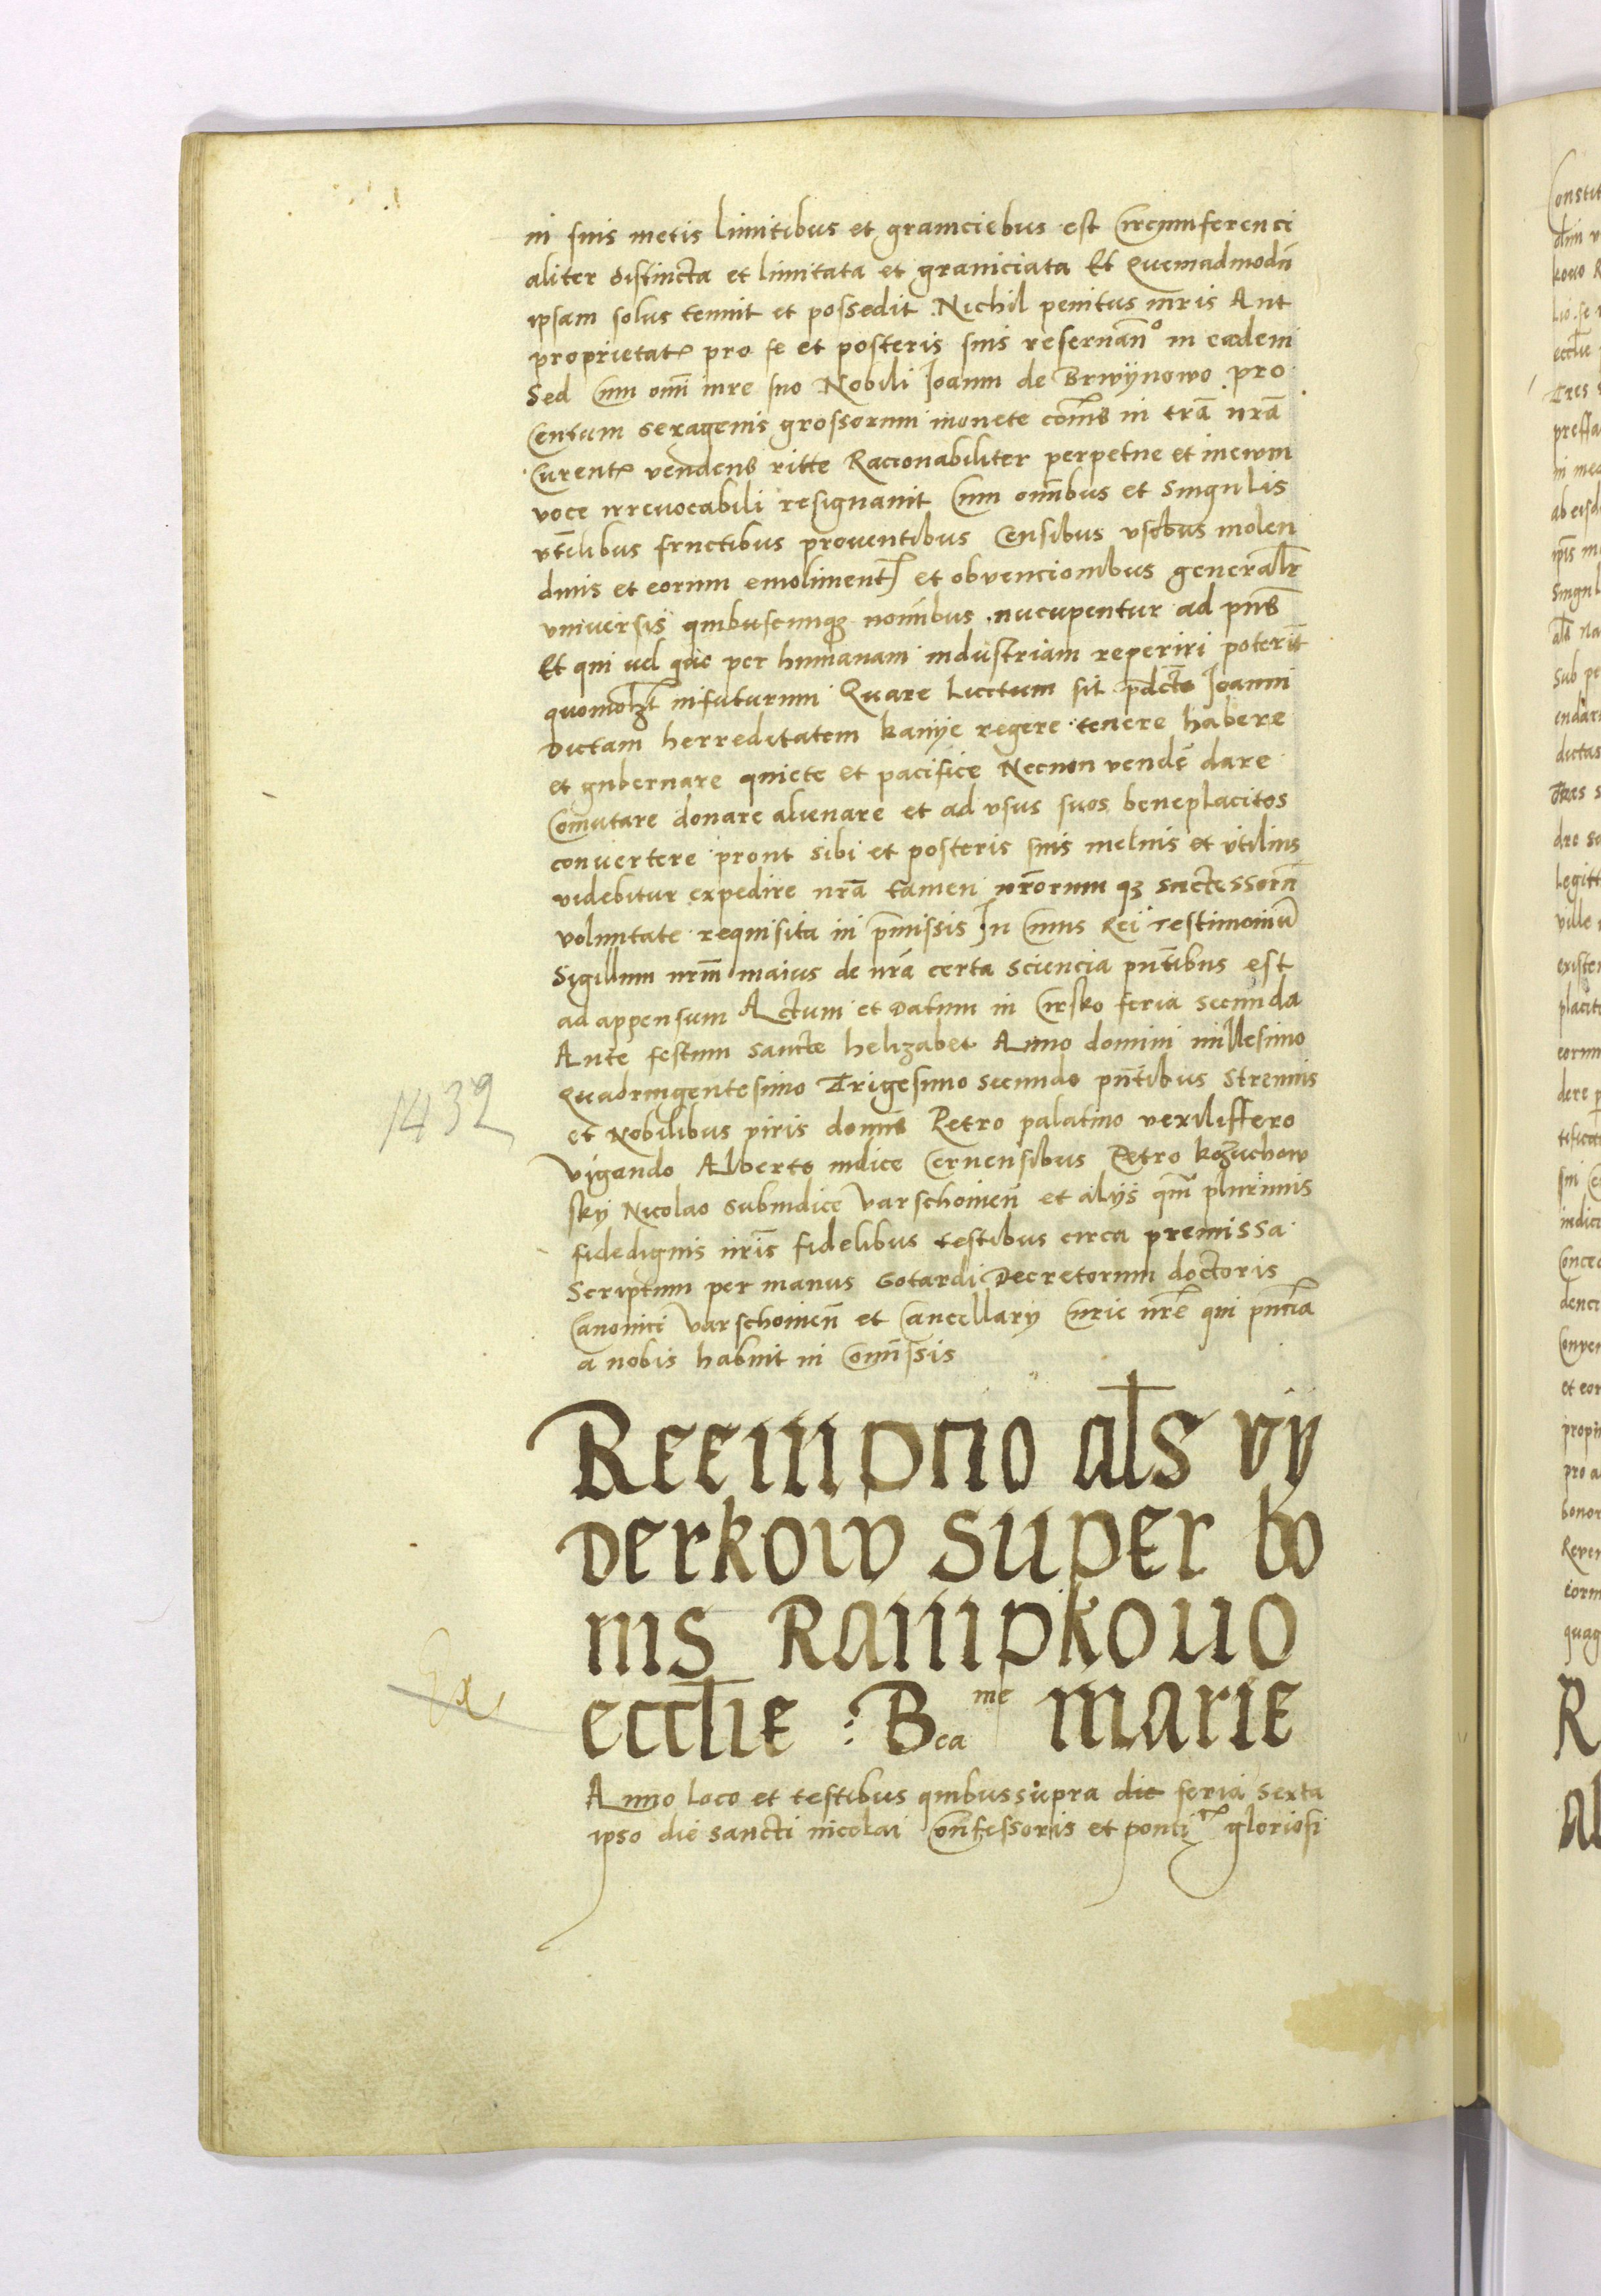 in suis metis limitibus et graniciebus est Circumferenci
aliter distincta et limitata et graniciata Et Quemadmodū
ipsam solus tenuit et possedit Nichil penitus iuris Aut
proprietatꝭ pro se et posteris suis reseruan͞o in eadem
Sed Cum om̄i iure suo Nobili Joanni de Brwÿnowo pro
Centum sexagenis grossorum monete com̄s in tr̄a nr̄a
Curentꝭ vendens ritte Racionabiliter perpetue et in ewm
voce irreuocabili resignauit Cum om̄ibus et Singulis
vt̄ilibus fructibus prouentibus Censibus vsibus molen
dinis et eorum emolimentꝭ et obvencionibus general̄r
vniuersis quibuscumqꝫ nomī̄bus nucupentur ad pn̄s
Et qui vel que per humanam industriam reperiri poterīt
quomol̄ꝫt in futurum Quare Licitum sit pd̄cto Joanni
Dictam herreditatem kanÿe regere tenere habere
et gubernare quiete et pacifice Necnon vendē dare
Com̄utare donare alienare et ad vsus suos beneplacitos
convertere prout sibi et posteris suis melius et vtilius
videbitur expedire nr̄a tamen nr̄orum qꝫ suctessorū
voluntate requisita in p̄missis In Cuius Rei Testimoniū
Sigillum nrm̄ maius de nr̄a certa sciencia pn̄tibus est
ad appensum Actum et Datum in Cirsko feria Secunda
Ante festum sancte helizabet Anno domini millesimo
Quadringentesimo Trigesimo secundo pn̄tibus Strenuis
1432
et Nobilibus viris domīs Petro palatino vexiliffero
Vigando Alberto iudice Cernensibus Petro kozuchow
skÿ Nicolao subiudice varschouien̄ et alÿs qm̄ plurimis
fidedignis nr̄is fidelibus testibus circa premissa
Scriptum per manus Gotardi Decretorum doctoris
Canonici varschouien̄ et Cancellarÿ Curie nr̄e qui pn̄cia
a nobis habuit in Com̄issis
Reempcio al̄s vÿ
derkow super bo
nis Rampkouo
eccl̄ie : Bca me marie
Anno loco et testibus quibus supra die feria sexta
ipso die sancti nicolai Confessoris et ponti gloriosi